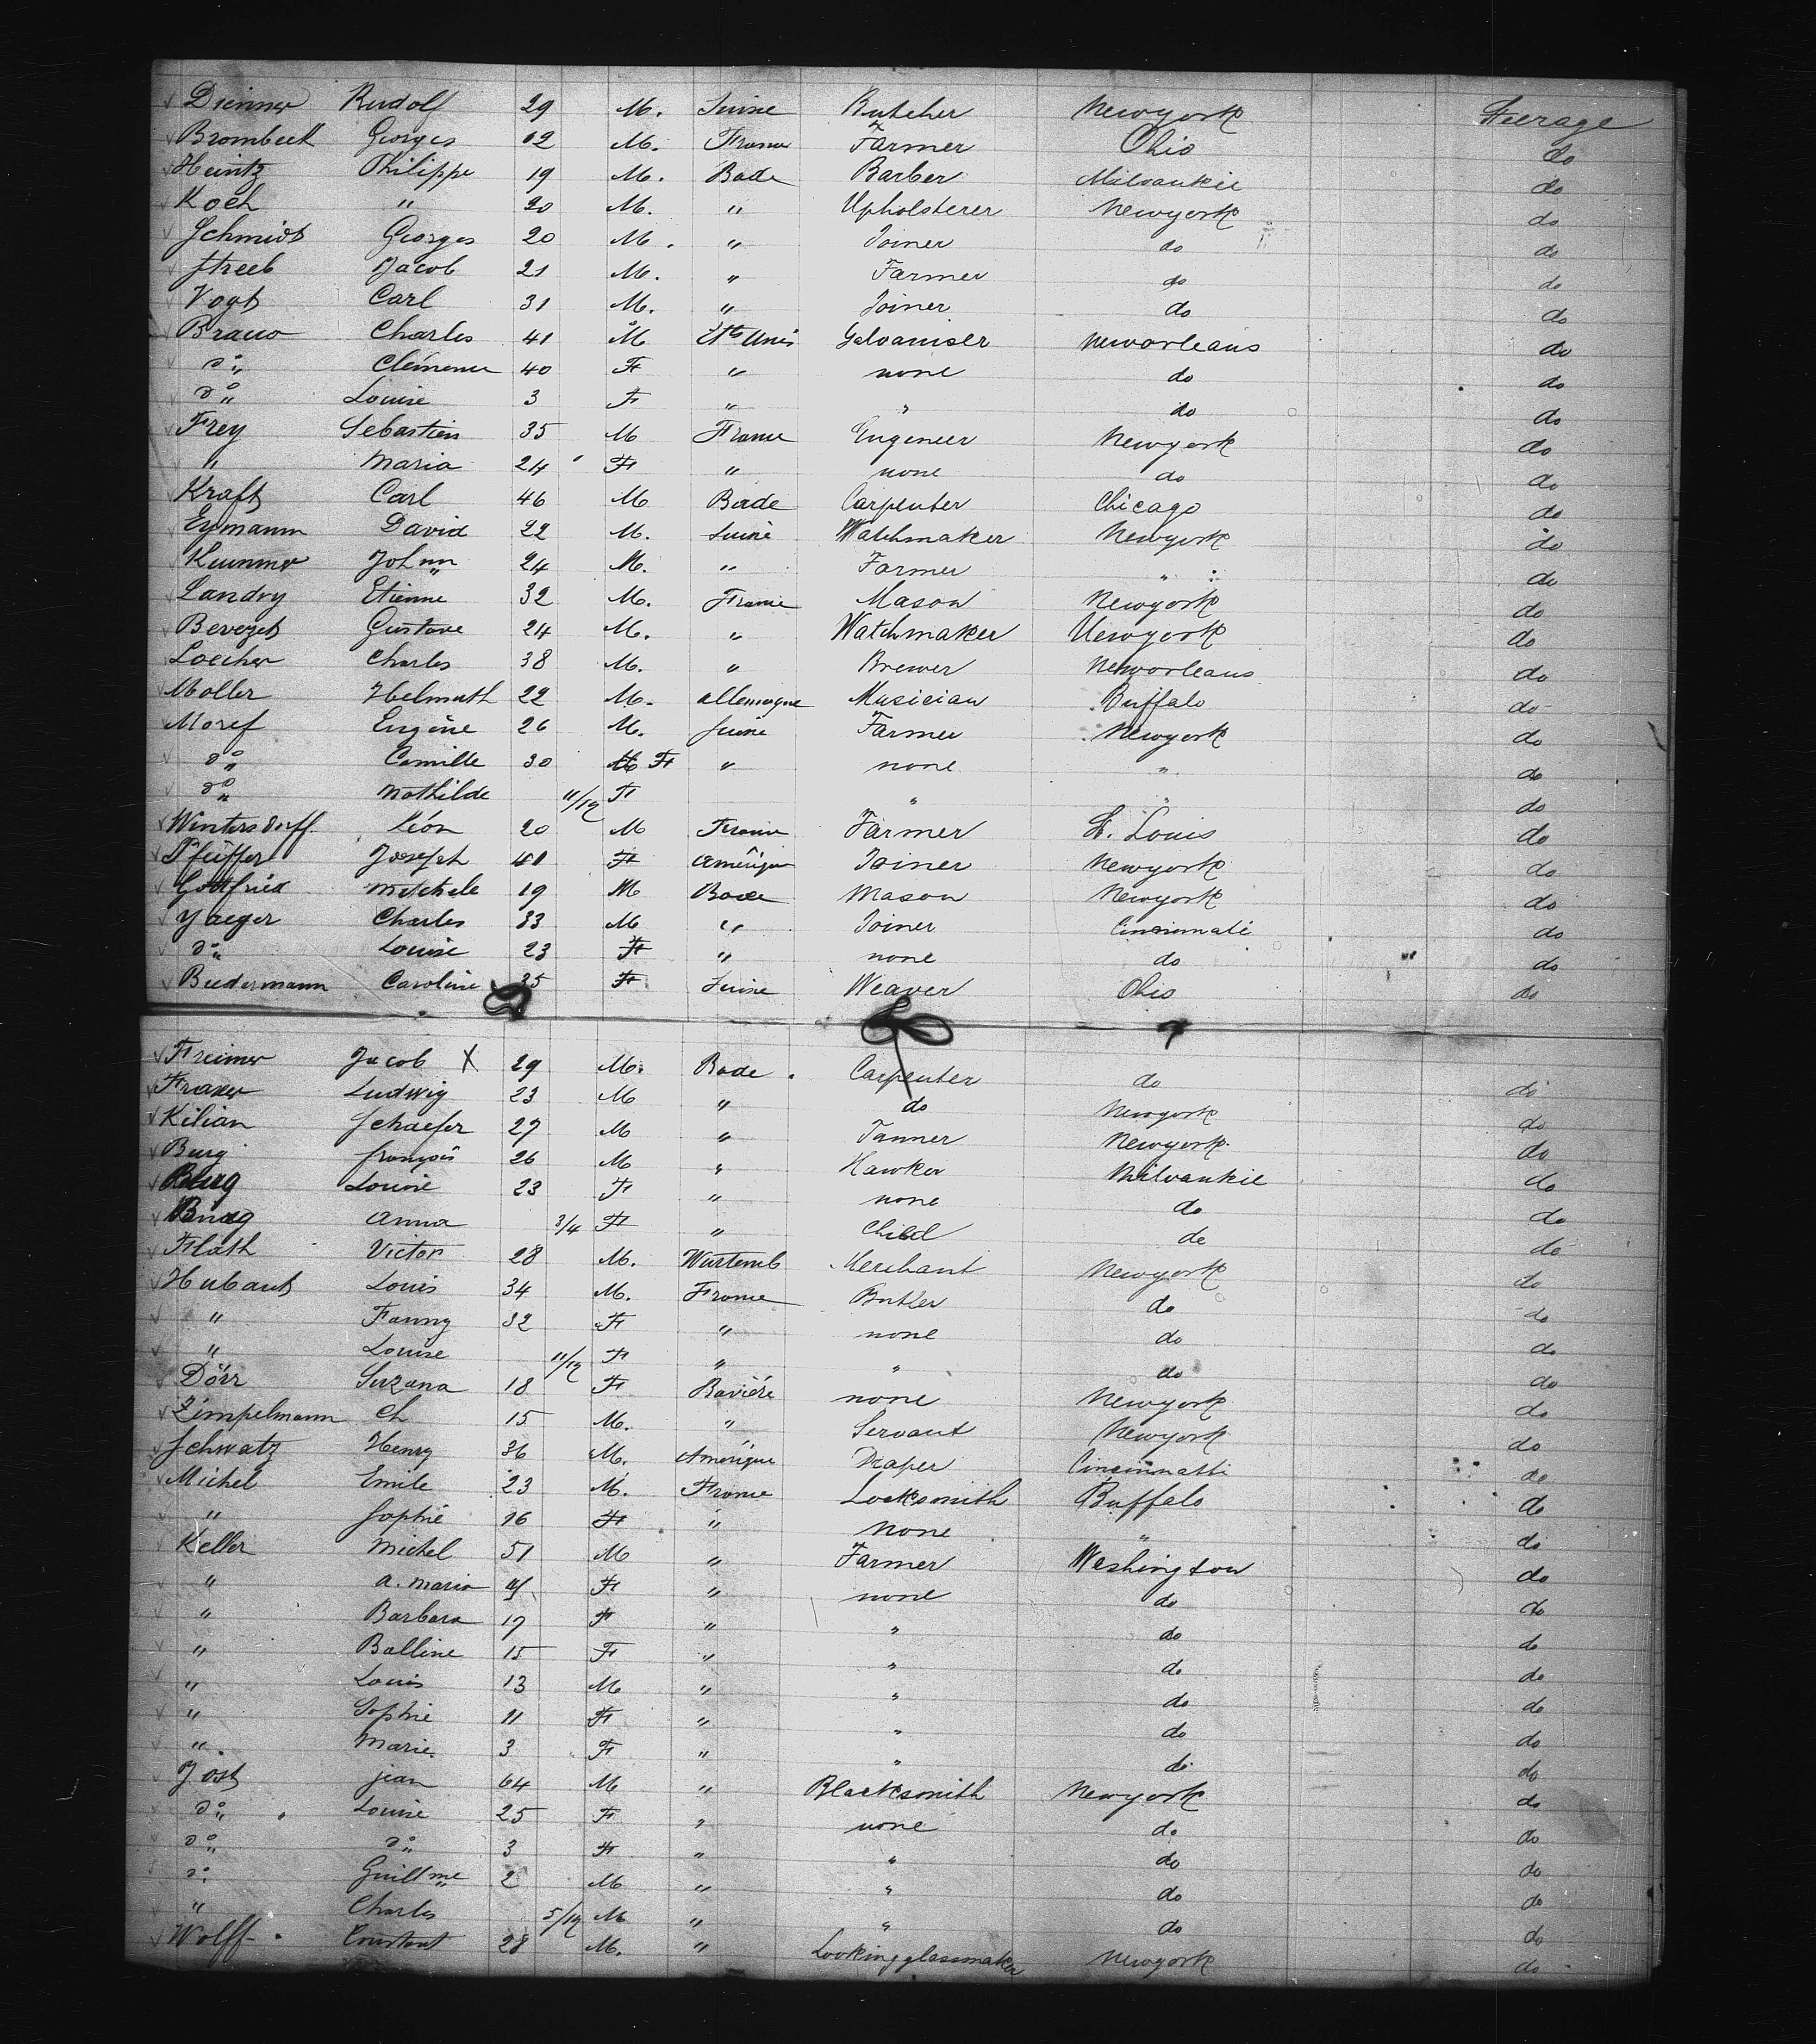 Dienner Rudolf 29 M. Suisse Butcher Newyork Steerage
Brombeck Georges 12 M. France Farmer Ohio do
Heintz Philippe 19 M. Bade Barber Milvaukie do
Koch " 20 M. " Upholsterer Newyork do
Schmidt Georges 20 M. " Joiner do do
Streeb Jacob 21 M. " Farmer do do
Vogt Carl 31 M. " Joiner do do
Brauo Charles 41 M Ets Unis Galvaniser Neworleans do
do Clémence 40 F " none do do
do Louise 3 F " " do do
Frey Sebastien 35 M France Engeneer Newyork do
" Maria 24 F " none do do
Kraft Carl 46 M Bade Carpenter Chicago do
Eymann David 22 M. Suisse Watchmaker Newyork do
Kummer Johnn 24 M. " Farmer " do
Landry Etienne 32 M. France Mason Newyork do
Bevezet Gustave 24 M. " Watchmaker Newyork do
Loecher Charles 38 M. " Brewer Neworleans do
Moller Helmuth 22 M. allemagne Musician Buffalo do
Moref Eugène 26 M. Suisse Farmer Newyork do
do Camille 30 F " none " do
do Mathilde 11/12 F " " do
Wintersdorff Léon 20 M France Farmer St. Louis do
Pfeiffer Joseph 41 F Amérique Joiner Newyork do
Gottfried Mischele 19 M Bade Mason Newyork do
Yaeger Charles 33 M " Joiner Cincinnati do
do Louise 23 F " none do do
Biedermann Caroline 35 F Suisse Weaver Ohio do
Freimer Jacob X 29 M. Bade. Carpenter do do
Fraxer Ludwig 23 M " do Newyork do
Kilian Schaefer 27 M " Tanner Newyork do
Burg françois 26 M " Hawker Milvaukie do
Burg Louise 23 F " none do do
Burg Anna 3/4 F " Child do do
Flath Victor 28 M. Wurtemb Merchant Newyork do
Hubaut Louis 34 M. France Butler do do
" Fanny 32 F " none do do
" Louise 11/12 F " " do do
Dörr Suzana 18 F Bavière none Newyork do
Zimpelmann Ch 15 M. " Servant Newyork do
Schwatz Henry 36 M. Amérique Draper Cincinnatti do
Michel Emile 23 M. France Locksmith Buffalo do
" Sophie 26 F " None " do
Keller Michel 51 M " Farmer Washington do
" A. Maria F " none do do
" Barbara 17 F " " do do
" Balline 15 F " " do do
" Louis 13 M " " do do
" Sophie 11 F " " do do
" Marie 3 F " " do do
Jost jean 64 M " Blacksmith Newyork do
do Louise 25 F " none do do
do do 3 F " " do do
do Guillme 2 M " " do do
" Charles 5/12 M " " do do
Wolff Constant 28 M. " Lookingglassmaker Newyork do